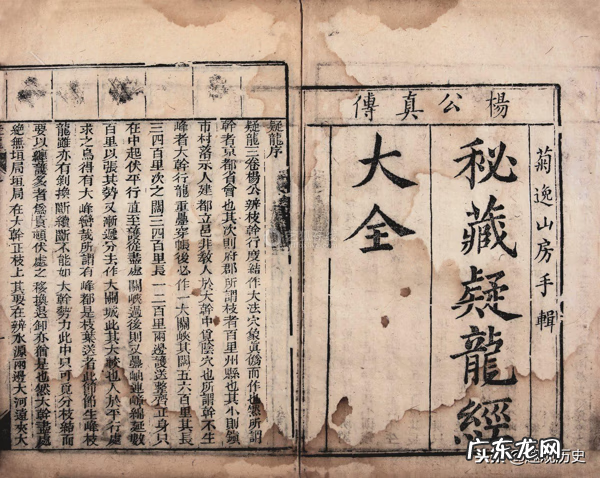 楊公真傳
菊逸山房手輯
秘藏疑龍經
大全
疑龍序
疑龍三卷楊公辨枝幹行度結作大法穴象真僞而作也無所謂
幹者京都省會也其次則府郡所謂枝者百里州縣也其小則鎮
市村落示人建都立邑非教人於大幹中覓陰穴也所謂幹不生
峰者大幹行龍重疊穿帳後必作一大關峽其闊五六百里其長
三四百里次之闊三四百里長一二百里兩邊護送整齊正身只
在中起伏平行直至落從盡處關峽過後則又疊岫連綿延數
百里以張其勢又漸過分去作大關城此其大峽也人於平行處
求之烏得有大峰巒哉所謂有峰都是枝葉送者此生峰枝
龍雖亦有剝換斷續斷不能如大幹勢力此中只可覓分枝結而
要以纏護多者為貴頓伏處之移換退卸亦猶是也然大幹盡處
絕無垣局垣局在大幹正枝上其要在辨水源兩邊大河遠夾大
广东龙网
历史